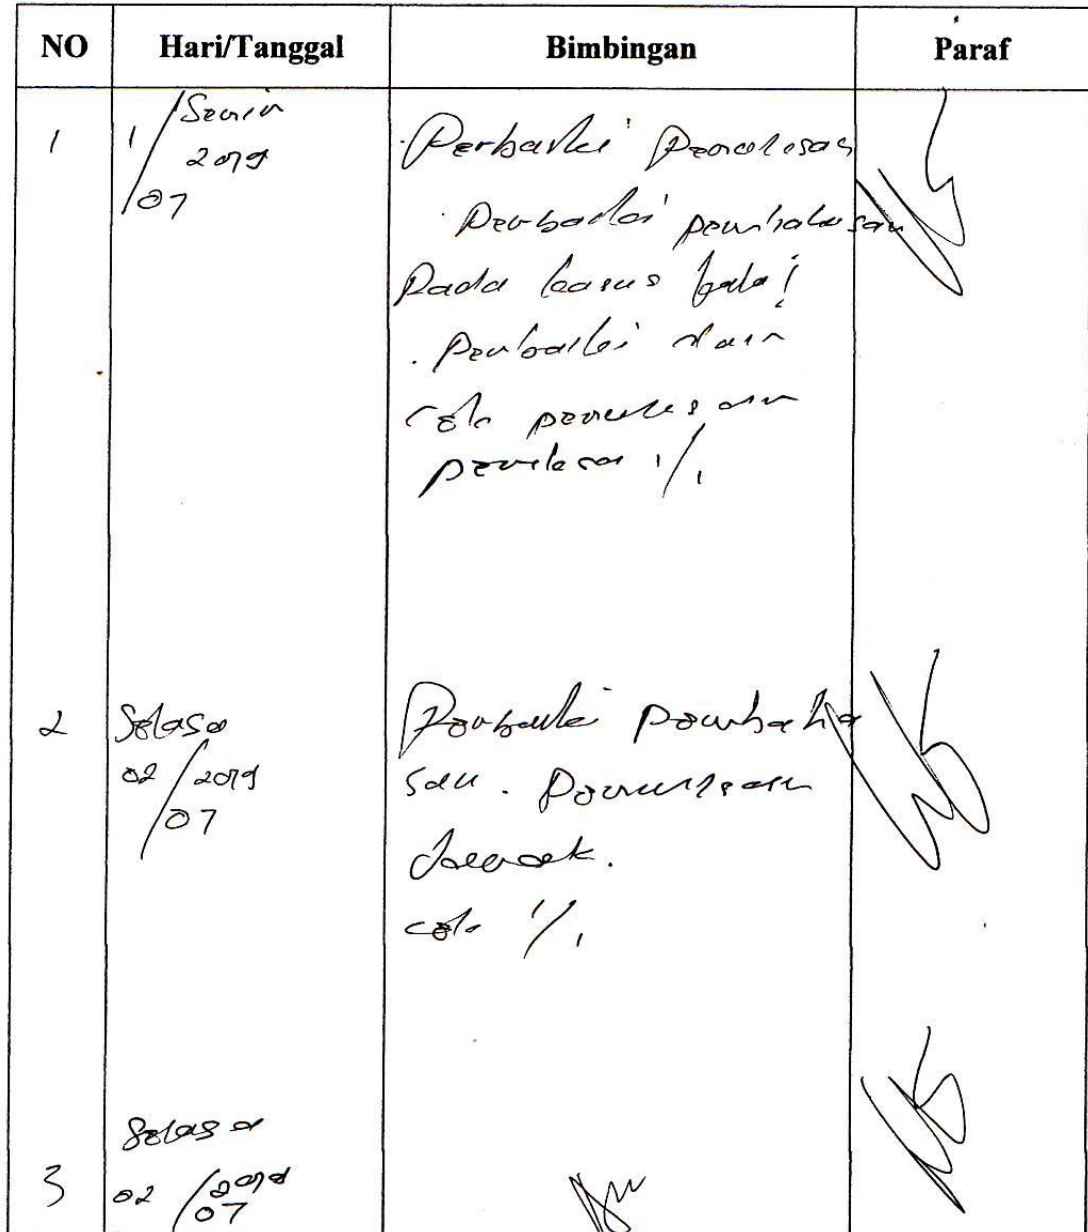 NO Hari/Tanggal Bimbingan Paraf
1 1/07 Senin 2019 Perbaiki Penulisan
Perbaiki pembahasan
Pada kasus
Perbaiki dan
cek penulisan
1/1
2 Selasa Perbaiki pembaha
02/07 2019 san. Penulisan
cek 1/1
Selasa
3 02/07 2019